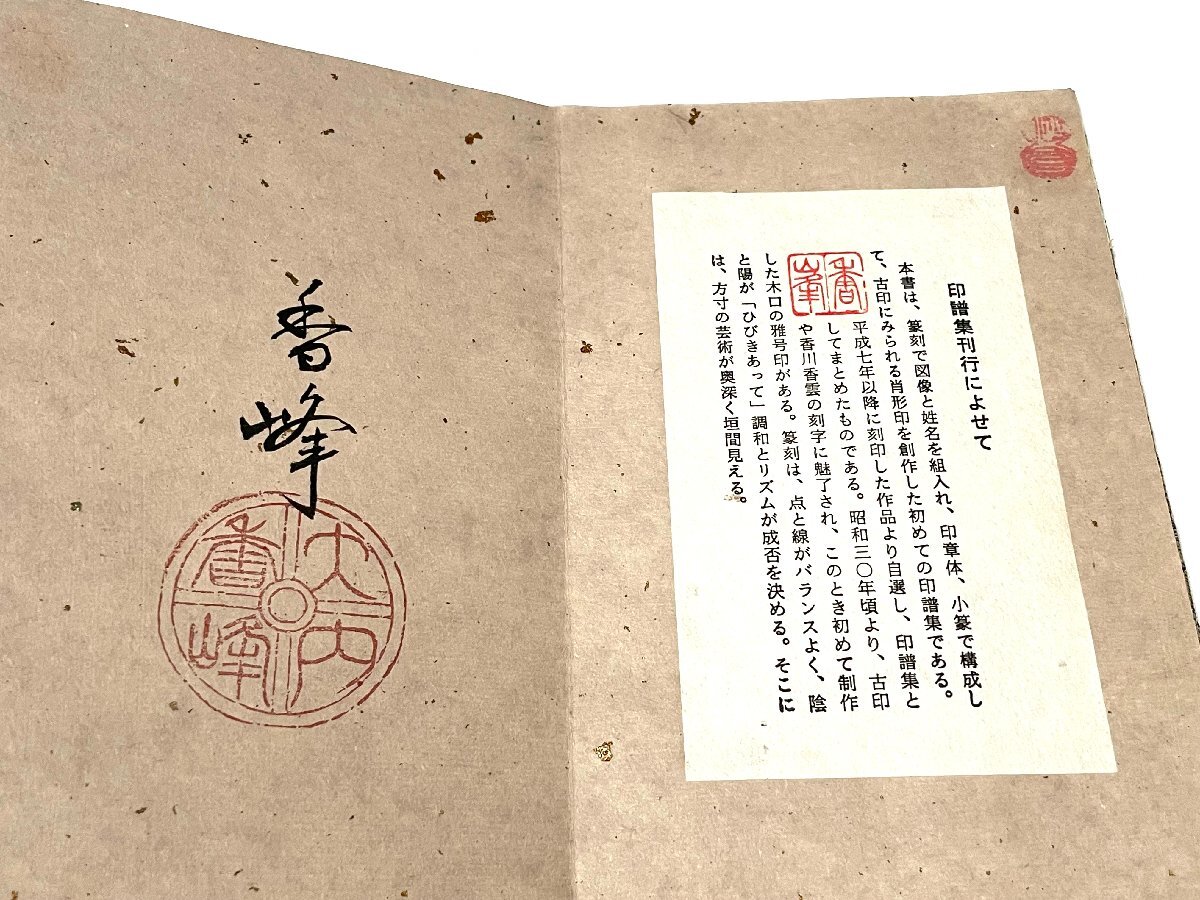 印譜集刊行によせて
本書は、篆刻で図像と姓名を組入れ、印章体、小篆で構成し
て、古印にみられる肖形印を創作した初めての印譜集である。
平成七年以降に刻印した作品より自選し、印譜集と
してまとめたものである。昭和三〇年頃より、古印
や香川香雲の刻字に魅了され、このとき初めて制作
した木口の雅号印がある。篆刻は、点と線がバランスよく、陰
と陽が「ひびきあって」調和とリズムが成否を決める。そこに
は、方寸の芸術が奥深く垣間見える。
香峯
香峰
大内
香峰